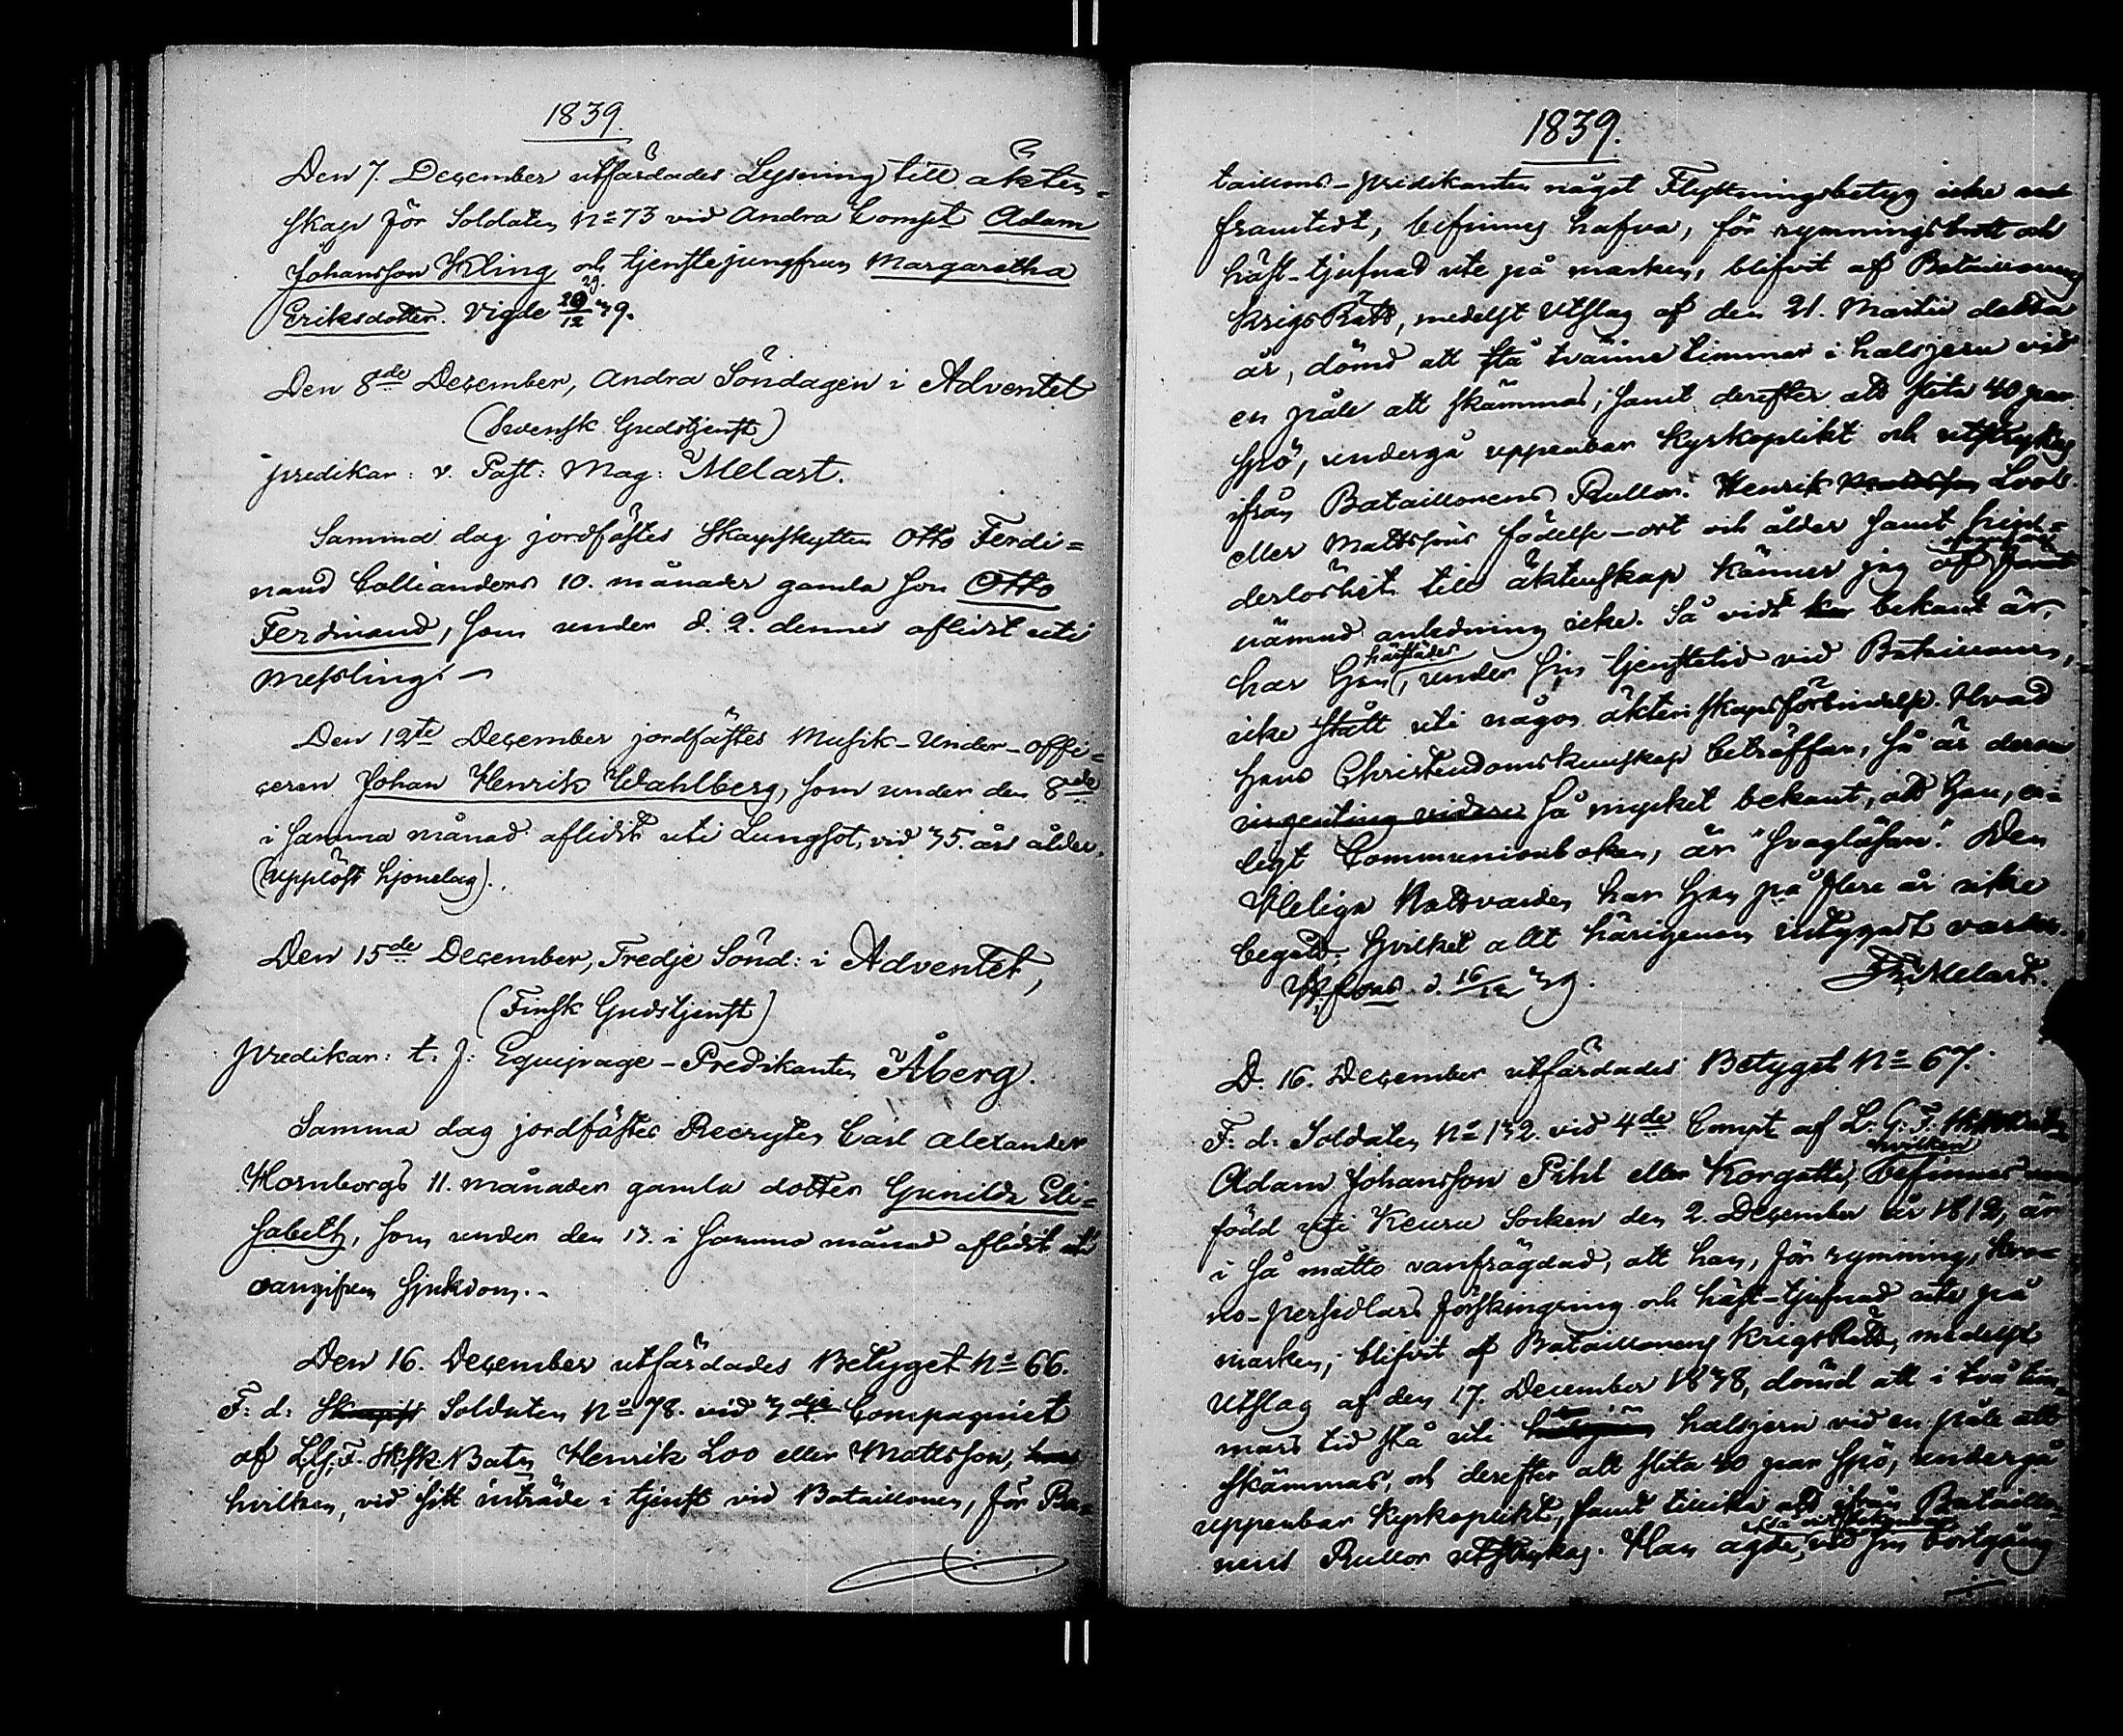 1839.
Den 7. December utfärdades Lysning till äkten-
skap för Soldaten No 73 vid Andra Compt Adam
Johansson Kling och tjenstejungfrun Margaretha
Eriksdotter. Vigde 29/12 39.
Den 8de December, Andra Söndagen i Adventet
(Svensk Gudstjenst)
predikar: v. Past: Mag: Melart.
Samma dag jordfästes Skarpskytten Otto Ferdi=
nand Calliander 10. månader gamla son Otto
Ferdinand, som under d. 2. dennes aflidit uti
messling. –
Den 12te December jordfästes Musik-Under-offi=
ceren Johan Henrik Wahlberg, som under den 8de
i samma månad aflidit uti Lungsot, vid 35. års ålder.
(upplöst hjonelag).
Den 15de December, Tredje Sönd: i Adventet,
(Finsk Gudstjenst)
predikar: t. f: Equipage-Predikanten Åberg.
Samma dag jordfästes Recryten Carl Alexander
Hornborgs 11. månader gamla dotter Gunilda Eli=
sabeth, som under den 13. i samma månad aflidit uti
oangifven sjukdom. -
Den 16. December utfärdades Betyget No 66.
F: d: Soldaten No 78. vid 3dje Compagniet
af L.G.F. Skfsk. Batn Henrik Loo eller Mattsson,
hvilken, vid sitt inträde i tjenst vid Bataillonen, för Ba=
1839.
taillons-predikanten något Flyttningsbetyg icke
framtedt, befinnes hafva, för rymningsbrott och
häst-tjufnad ute på marken, blifvit af Bataillonens
KrigsRätt, medelst Utslag af den 21. Martii detta
år, dömd att stå tvänne timmar i halsjern vid
en påle att skämmas, samt derefter att slita 40 par
spö, undergå uppenbar Kyrkoplikt och utstrykas
ifrån Bataillonens Rullor. Henrik Loos
eller Mattssons födelse-ort och ålder samt hin=
derlöshet till äktenskap känner jag af
nämnd anledning icke. Så vidt bekant är,
har Han, härstädes under sin tjenstetid vid Bataillonen,
icke stått uti någon äktenskapsförbindelse. Hvad
hans Christendomskunskap beträffar, så är derom
ingenting vidare så mycket bekant, att Han, en=
ligt Communionboken, är "svagläsare". Den
Heliga Nattvarden har Han på flere år icke
begått; hvilket allt härigenom intygadt varder.
d. 16/12 39. Fr. Melart.
D. 16. December utfärdades Betyget No 67.
F: d: Soldaten No 132. vid 4de Compt af L. G. F.
Adam Johansson Pihl eller Korgatti, hvilken befinnes vara
född uti Keuru Socken den 2. December år 1812, är
i så måtto vanfrägdad, att han, för rymning, kro=
no-persedlars förskingring och häst-tjufnad ute på
marken, blifvit af Bataillonens KrigsRätt, medelst
Utslag af den 17. December 1838, dömd att i två tim=
mars tid stå uti halsjern vid en påle att
skämmas, och derefter att slita 40 par spö, undergå
uppenbar Kyrkoplikt, samt tillika att ifrån Bataillo=
nens Rullor utstrykas. Han ägde, vid sin bortgång